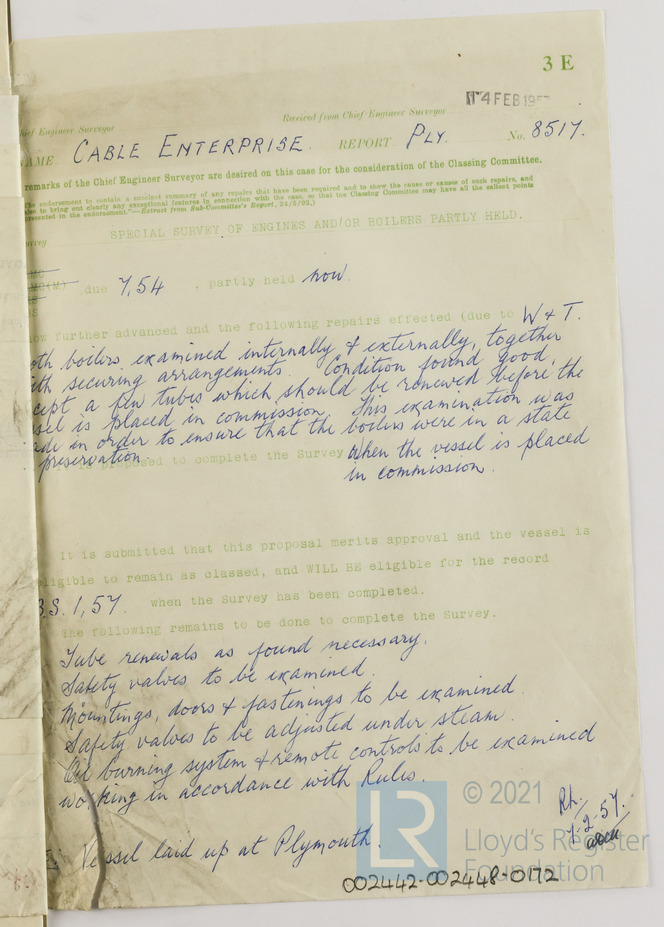 3 E
14 FEB 195
hief Engineer Surveyor
Received from Chief Engineer Surveyor
NAME CABLE ENTERPRISE. REPORT PLY. No. 8517.
remarks of the Chief Engineer Surveyor are desired on this case for the consideration of the Classing Committee.
The endorsement to contain a succinct summary of any repairs that have been required and to show the cause or causes of such repairs, and
also to bring out clearly any exceptional features in connection with the case, so that the Classing Committee may have all the salient points
presented in the endorsement."—Extract from Sub-Committee's Report,
urvey SPECIAL SURVEY OF ENGINES AND/OR BOILERS PARTLY HELD.
MC
MC(M) due 7,54 , partly held now
BS
ow further advanced and the following repairs effected (due to W & T.
oth boilers examined internally & externally, together
ith securing arrangements. Condition found good,
cept a few tubes which should be renewed before the
ssel is placed in commission. This examination was
ade in order to ensure that the boilers were in a state
preservation.
proposed to complete the Survey when the vessel is placed
in commission.
It is submitted that this proposal merits approval and the vessel is
eligible to remain as classed, and WILL BE eligible for the record
B.S. 1,57. when the Survey has been completed.
The following remains to be done to complete the Survey.
Tube renewals as found necessary.
Safety valves to be examined.
Mountings, doors & fastenings to be examined.
Safety valves to be adjusted under steam.
Oil burning system & remote controls to be examined
working in accordance with Rules.
Vessel laid up at Plymouth.
7.2.57.
LR
© 2021
Lloyd's Register
Foundation
002442-002448-0172